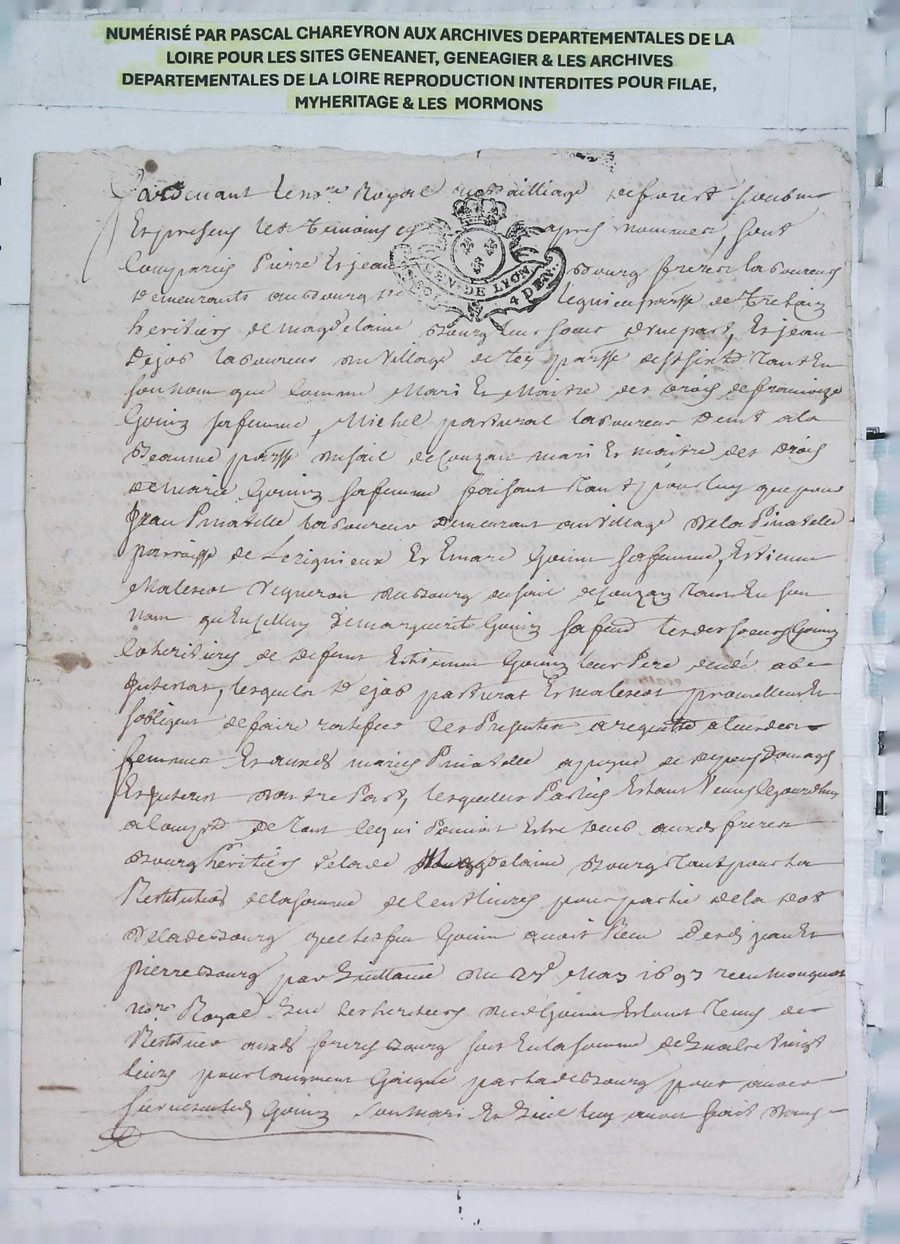 NUMÉRISÉ PAR PASCAL CHAREYRON AUX ARCHIVES DEPARTEMENTALES DE LA
LOIRE POUR LES SITES GENEANET, GENEAGIER & LES ARCHIVES
DEPARTEMENTALES DE LA LOIRE REPRODUCTION INTERDITES POUR FILAE,
MYHERITAGE & LES MORMONS
Pardevant le no.re Royal au bailliage de forest soubne
Et presens les temoins cy apres nommes, sont
comparus Pierre Et jean bourg freres laboureurs
GEN. DE LYON
4 DEN.
demeurants au bourg de parsse de
heritiers de magdelaine bourg leur soeur d'une part, Et jean
Dejob laboureur du village de parsse de tant En
son nom que comme Mari Et Maitre des drois de francoize
Goin sa femme, Michel pastural laboureur demt a la
Beaume parsse du sail de Couzan mari Et maitre des drois
de marie Goin sa femme faisant tant pour luy que pour
jean Pinatelle laboureur demeurant au village de la Pinatelle
parroisse de Lerignieux Et Emare Goin sa femme, Estienne
Malescot vigneron du bourg du sail de Couzan tant En son
nom qu'En celluy de marguerite Goin sa fem lesdes soeurs Goin
coheritieres de deffunt Estienne Goin leur Pere decedé abe
intestat, lesquels dejob pastural Et malescot promettent Et
s'obligent de faire ratiffier les Presentes a leurdes
femmes Et auxds maries Pinatelle a peyne de depens Domages
Et interest d'autre Part, lesquelles Parties Estant venus cejourdhuy
a compte de tout ce qui Pouvoit Estre deub auxds freres
bourg heritiers de lade Magdelaine bourg tant pour la
Restitution de la somme de cent livres pour partie de la dot
de lade bourg que led feu Goin avoit Receu desds jean Et
pierre bourg par quittance du may 1693 receu
no.re Royal que les heritiers dud Goin Estant tenus de
Restituer auxds freres bourg soit En la somme de quatre vingt
livres pour l'augment Gaigné par lade bourg pour avoir
survescu led Goin son mari Et que luy avoit fait dans